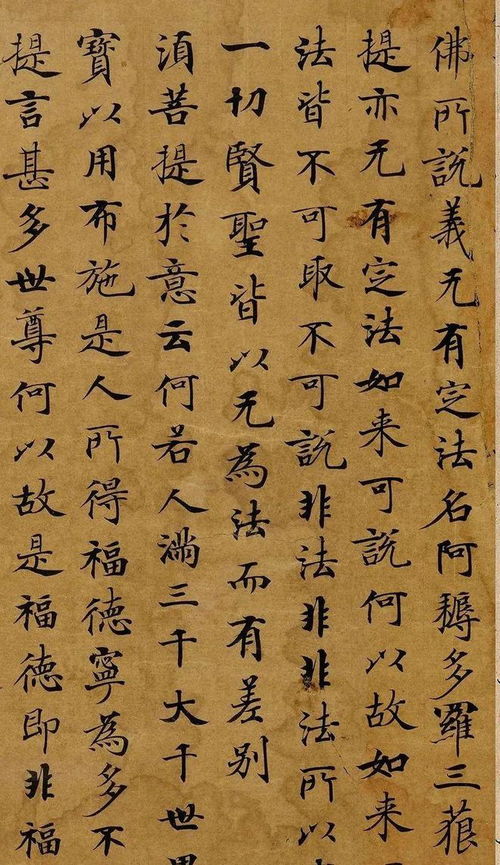 佛所說義无有定法名阿耨多羅三藐
提亦无有定法如来可說何以故如来
法皆不可取不可說非法非非法所以
一切賢聖皆以无為法而有差別
須菩提於意云何若人滿三千大千世界
寶以用布施是人所得福德寧為多不
提言甚多世尊何以故是福德即非福